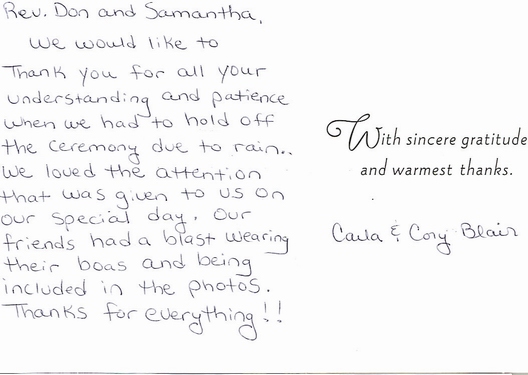 Rev. Don and Samantha,
We would like to
Thank you for all your
understanding and patience
when we had to hold off
the ceremony due to rain..
We loved the attention
that was given to us on
our special day. Our
friends had a blast wearing
their boas and being
included in the photos.
Thanks for everything!!
With sincere gratitude
and warmest thanks.
Carla & Cory Blair